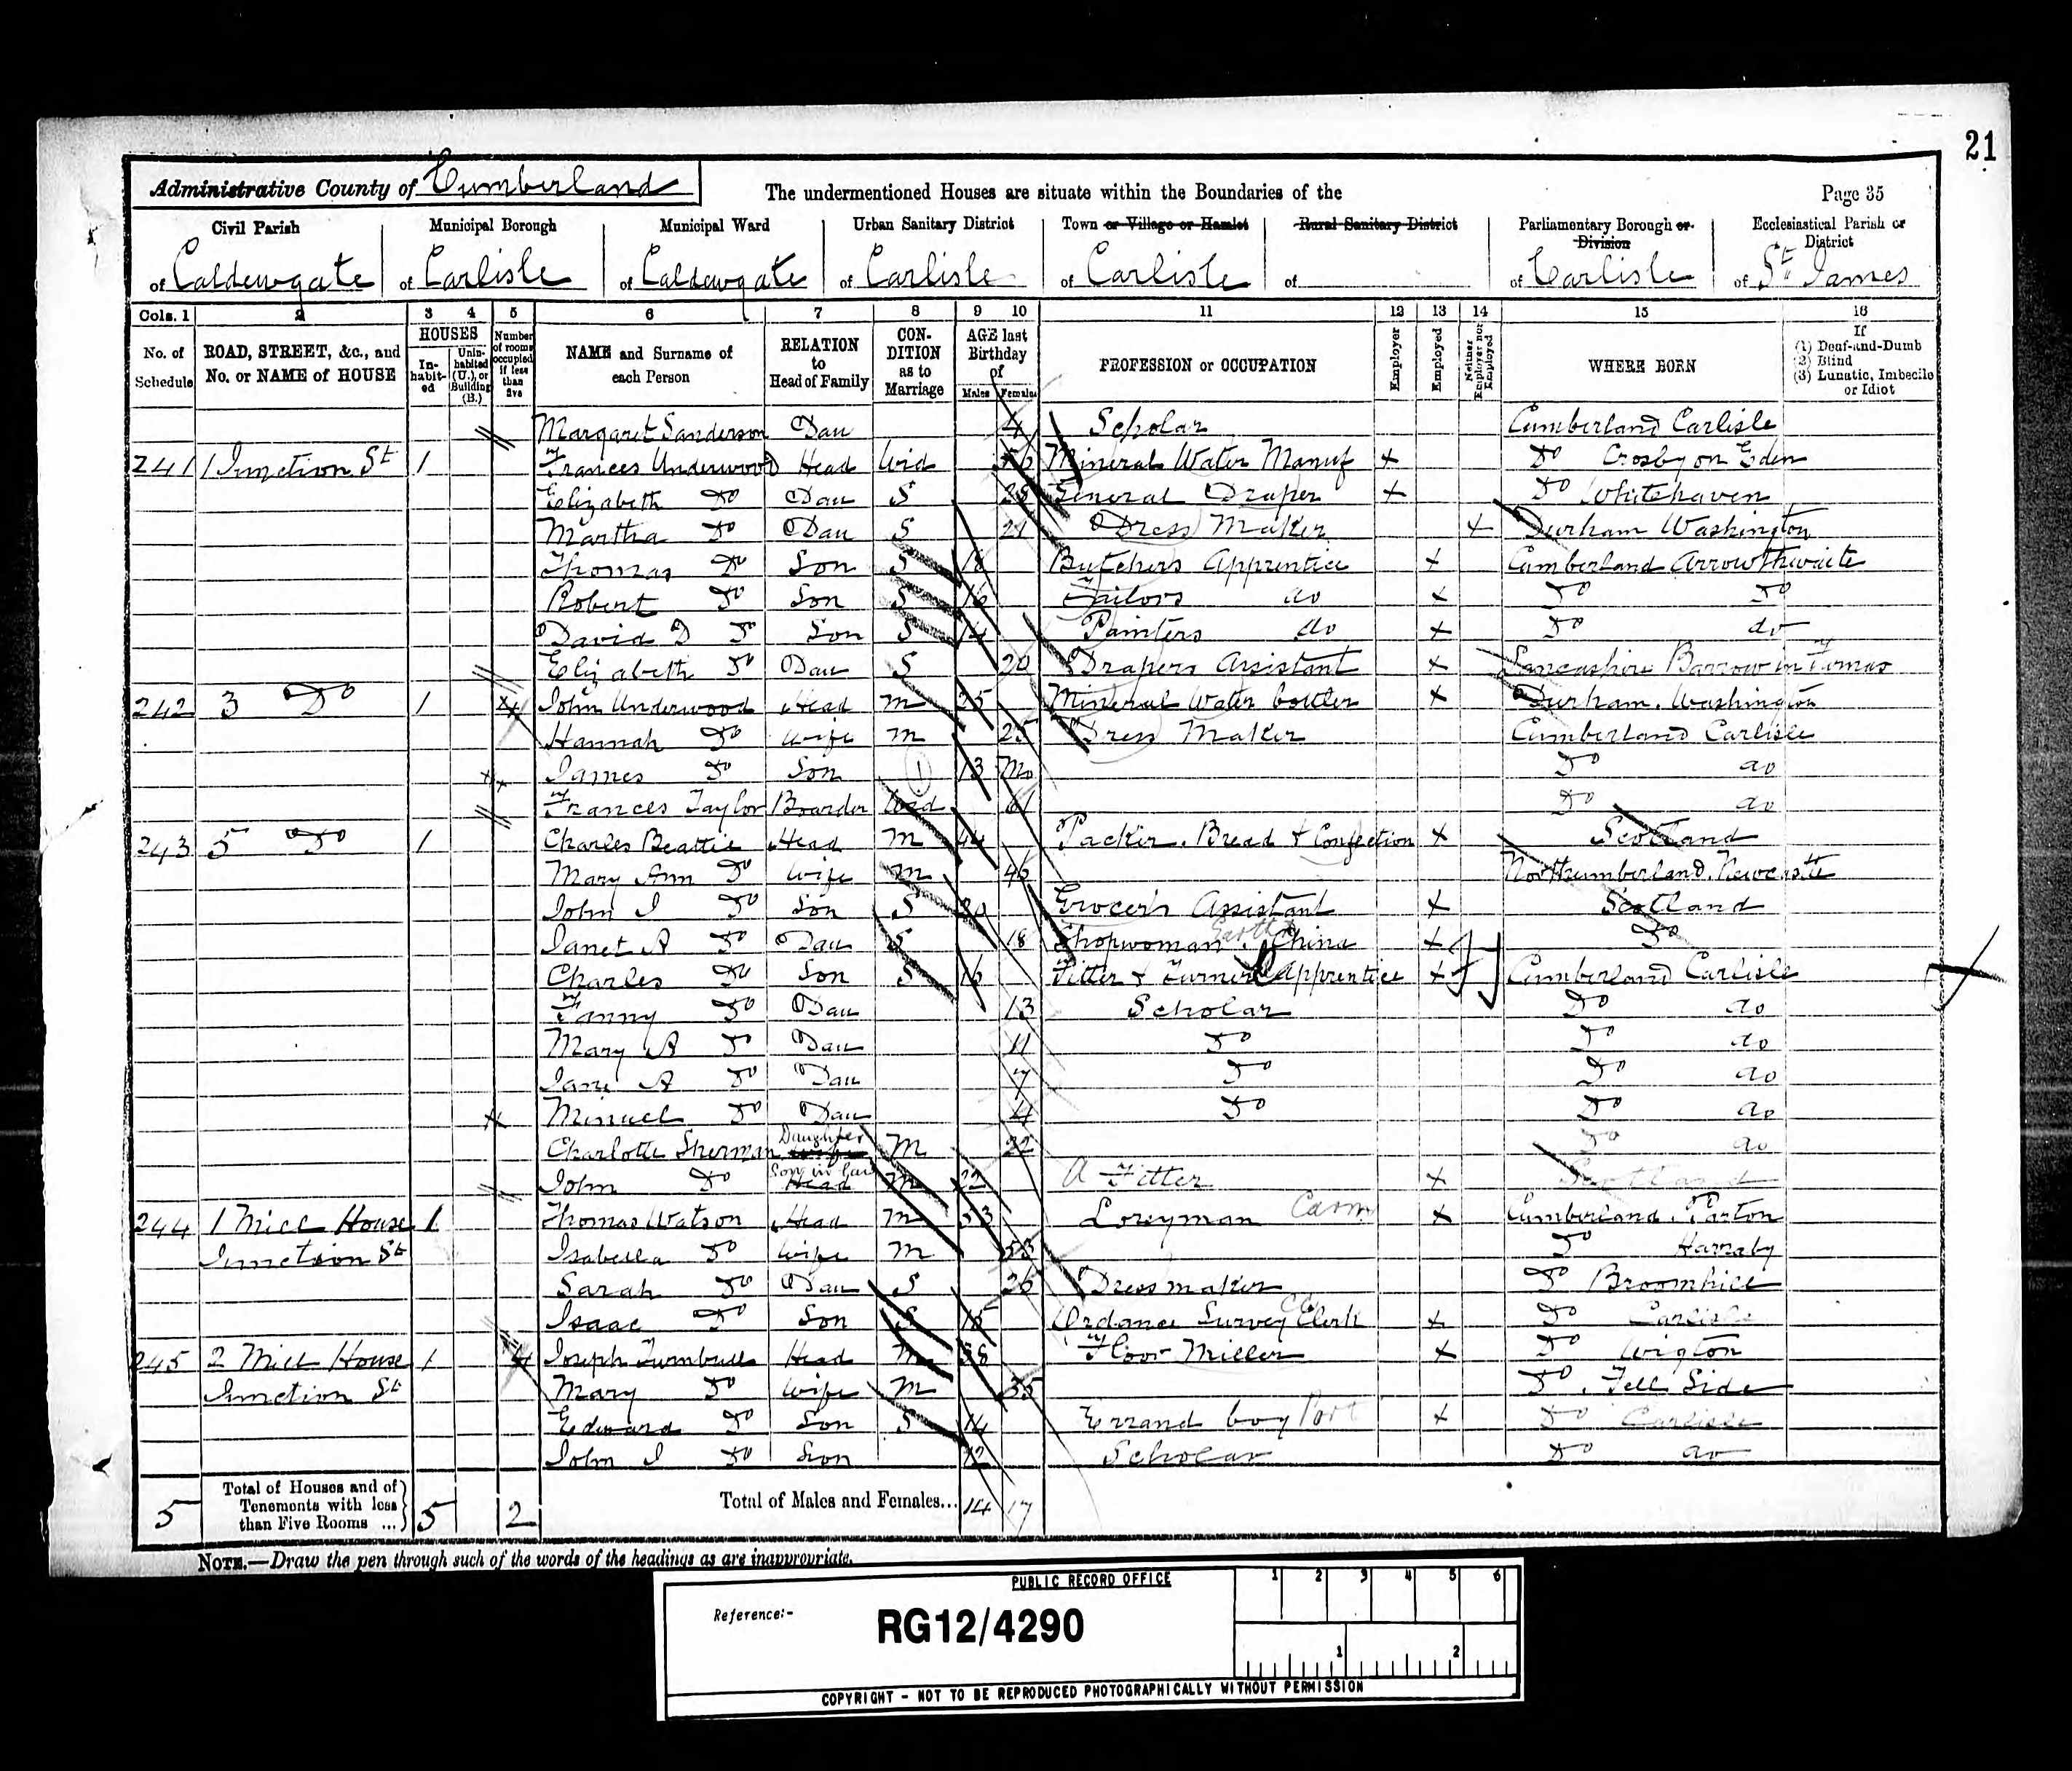 21
Administrative County of Cumberland
The undermentioned Houses are situate within the Boundaries of the
Page 35
Civil Parish
of Caldewgate
Municipal Borough
of Carlisle
Municipal Ward
of Caldewgate
Urban Sanitary District
of Carlisle
Town or Village or Hamlet
of Carlisle
Rural Sanitary District
of
Parliamentary Borough or Division
of Carlisle
Ecclesiastical Parish or District
of St. James
Cols. 1 2 3 4 5 6 7 8 9 10 11 12 13 14 15 16
No. of Schedule
ROAD, STREET, &c., and No. or NAME of HOUSE
HOUSES
Inhabited
Uninhabited (U.), or Building (B.)
Number of rooms occupied if less than five
NAME and Surname of each Person
RELATION to Head of Family
CONDITION as to Marriage
AGE last Birthday of
Males Females
PROFESSION or OCCUPATION
Employer
Employed
Neither Employer nor Employed
WHERE BORN
If
(1) Deaf-and-Dumb
(2) Blind
(3) Lunatic, Imbecile or Idiot
Margaret Sanderson Dau 4 Scholar Cumberland Carlisle
241 1 Junction St 1 Frances Underwood Head Wid Mineral Water Manuf X Do Crosby on Eden
Elizabeth Do Dau S 28 General Draper X Do Whitehaven
Martha Do Dau S 21 Dress Maker X Durham Washington
Thomas Do Son S 18 Butchers Apprentice X Cumberland Arrowthwaite
Robert Do Son S 16 Tailors do X Do Do
David D Do Son S 14 Painters do X Do do
Elizabeth Do Dau S 20 Drapers Assistant X Lancashire Barrow in Furnas
242 3 Do 1 4 John Underwood Head M 25 Mineral Water bottler X Durham. Washington
Hannah Do Wife M 25 Dress Maker Cumberland Carlisle
James Do Son 1 13 Mo Do do
Frances Taylor Boarder Wid 61 Do do
243 5 Do 1 Charles Beattie Head M 44 Packer. Bread & Confection X Scotland
Mary Ann Do Wife M 46 Northumberland. Newcastle
John J Do Son S 20 Grocer's Assistant X Scotland
Janet A Do Dau S 18 Shopwoman. China X Do
Charles Do Son S 16 Fitter & Turner Apprentice X Cumberland Carlisle
Fanny Do Dau 13 Scholar Do do
Mary A Do Dau 11 Do Do do
Jane A Do Dau 7 Do Do do
Do Dau 4 Do Do do
Charlotte Sherman Daughter Wife M 22 Do do
John Do Son in Law Head M 22 A Fitter X Scotland
244 1 Mill House 1 Thomas Watson Head M 53 Loreyman X Cumberland. Parton
Junction St Isabella Do Wife M 53 Do Harraby
Sarah Do Dau S 26 Dressmaker Do Broomhill
Isaac Do Son S Ordance Survey Clerk X Do Carlisle
245 2 Mill House 1 4 Joseph Turnbull Head M 38 Floor Miller X Do Wigton
Junction St Mary Do Wife M 35 Do. Fell Side
Edward Do Son S 14 Errand boy Port X Do Carlisle
John J Do Son 12 Scholar Do do
5 Total of Houses and of Tenements with less than Five Rooms ... 5 2 Total of Males and Females... 14 17
NOTE.—Draw the pen through such of the words of the headings as are inappropriate.
PUBLIC RECORD OFFICE
Reference:-
RG12/4290
1 2 3 4 5 6
1 2
COPYRIGHT - NOT TO BE REPRODUCED PHOTOGRAPHICALLY WITHOUT PERMISSION